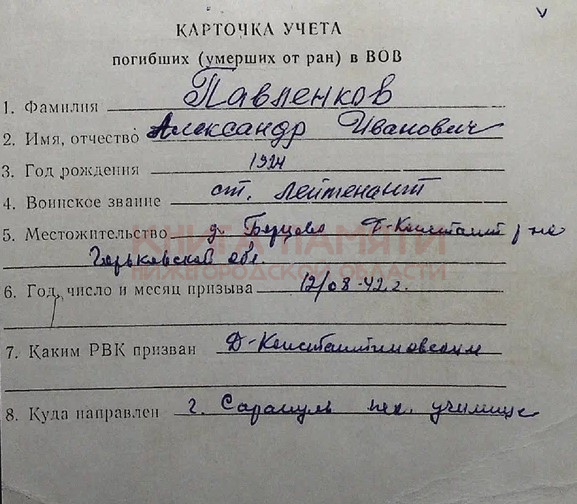 КАРТОЧКА УЧЕТА
погибших (умерших от ран) в ВОВ
1. Фамилия Павленков
2. Имя, отчество Александр Иванович
3. Год рождения 1924
4. Воинское звание ст. лейтенант
5. Местожительство д. Д-Констант р-на
Горьковской обл.
КНИГА ПАМЯТИ
НИЖЕГОРОДСКОЙ ОБЛАСТИ
6. Год, число и месяц призыва 12/08-42 г.
7. Каким РВК призван Д-Константиновским
8. Куда направлен г. Сарапуль пех. училище